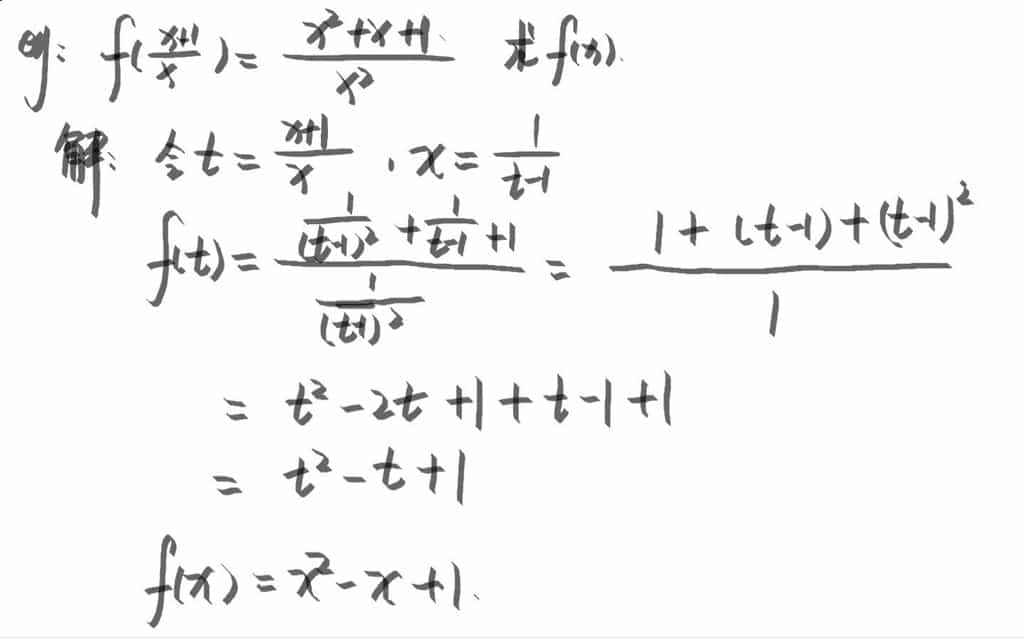 eg: f((x+1)/x) = (x²+x+1)/x² 求f(x).
解: 令t = (x+1)/x, x = 1/(t-1)
f(t) = (1/(t-1)² + 1/(t-1) + 1)/(1/(t-1)²) = (1+(t-1)+(t-1)²)/1
= t²-2t+1+t-1+1
= t²-t+1
f(x) = x²-x+1.